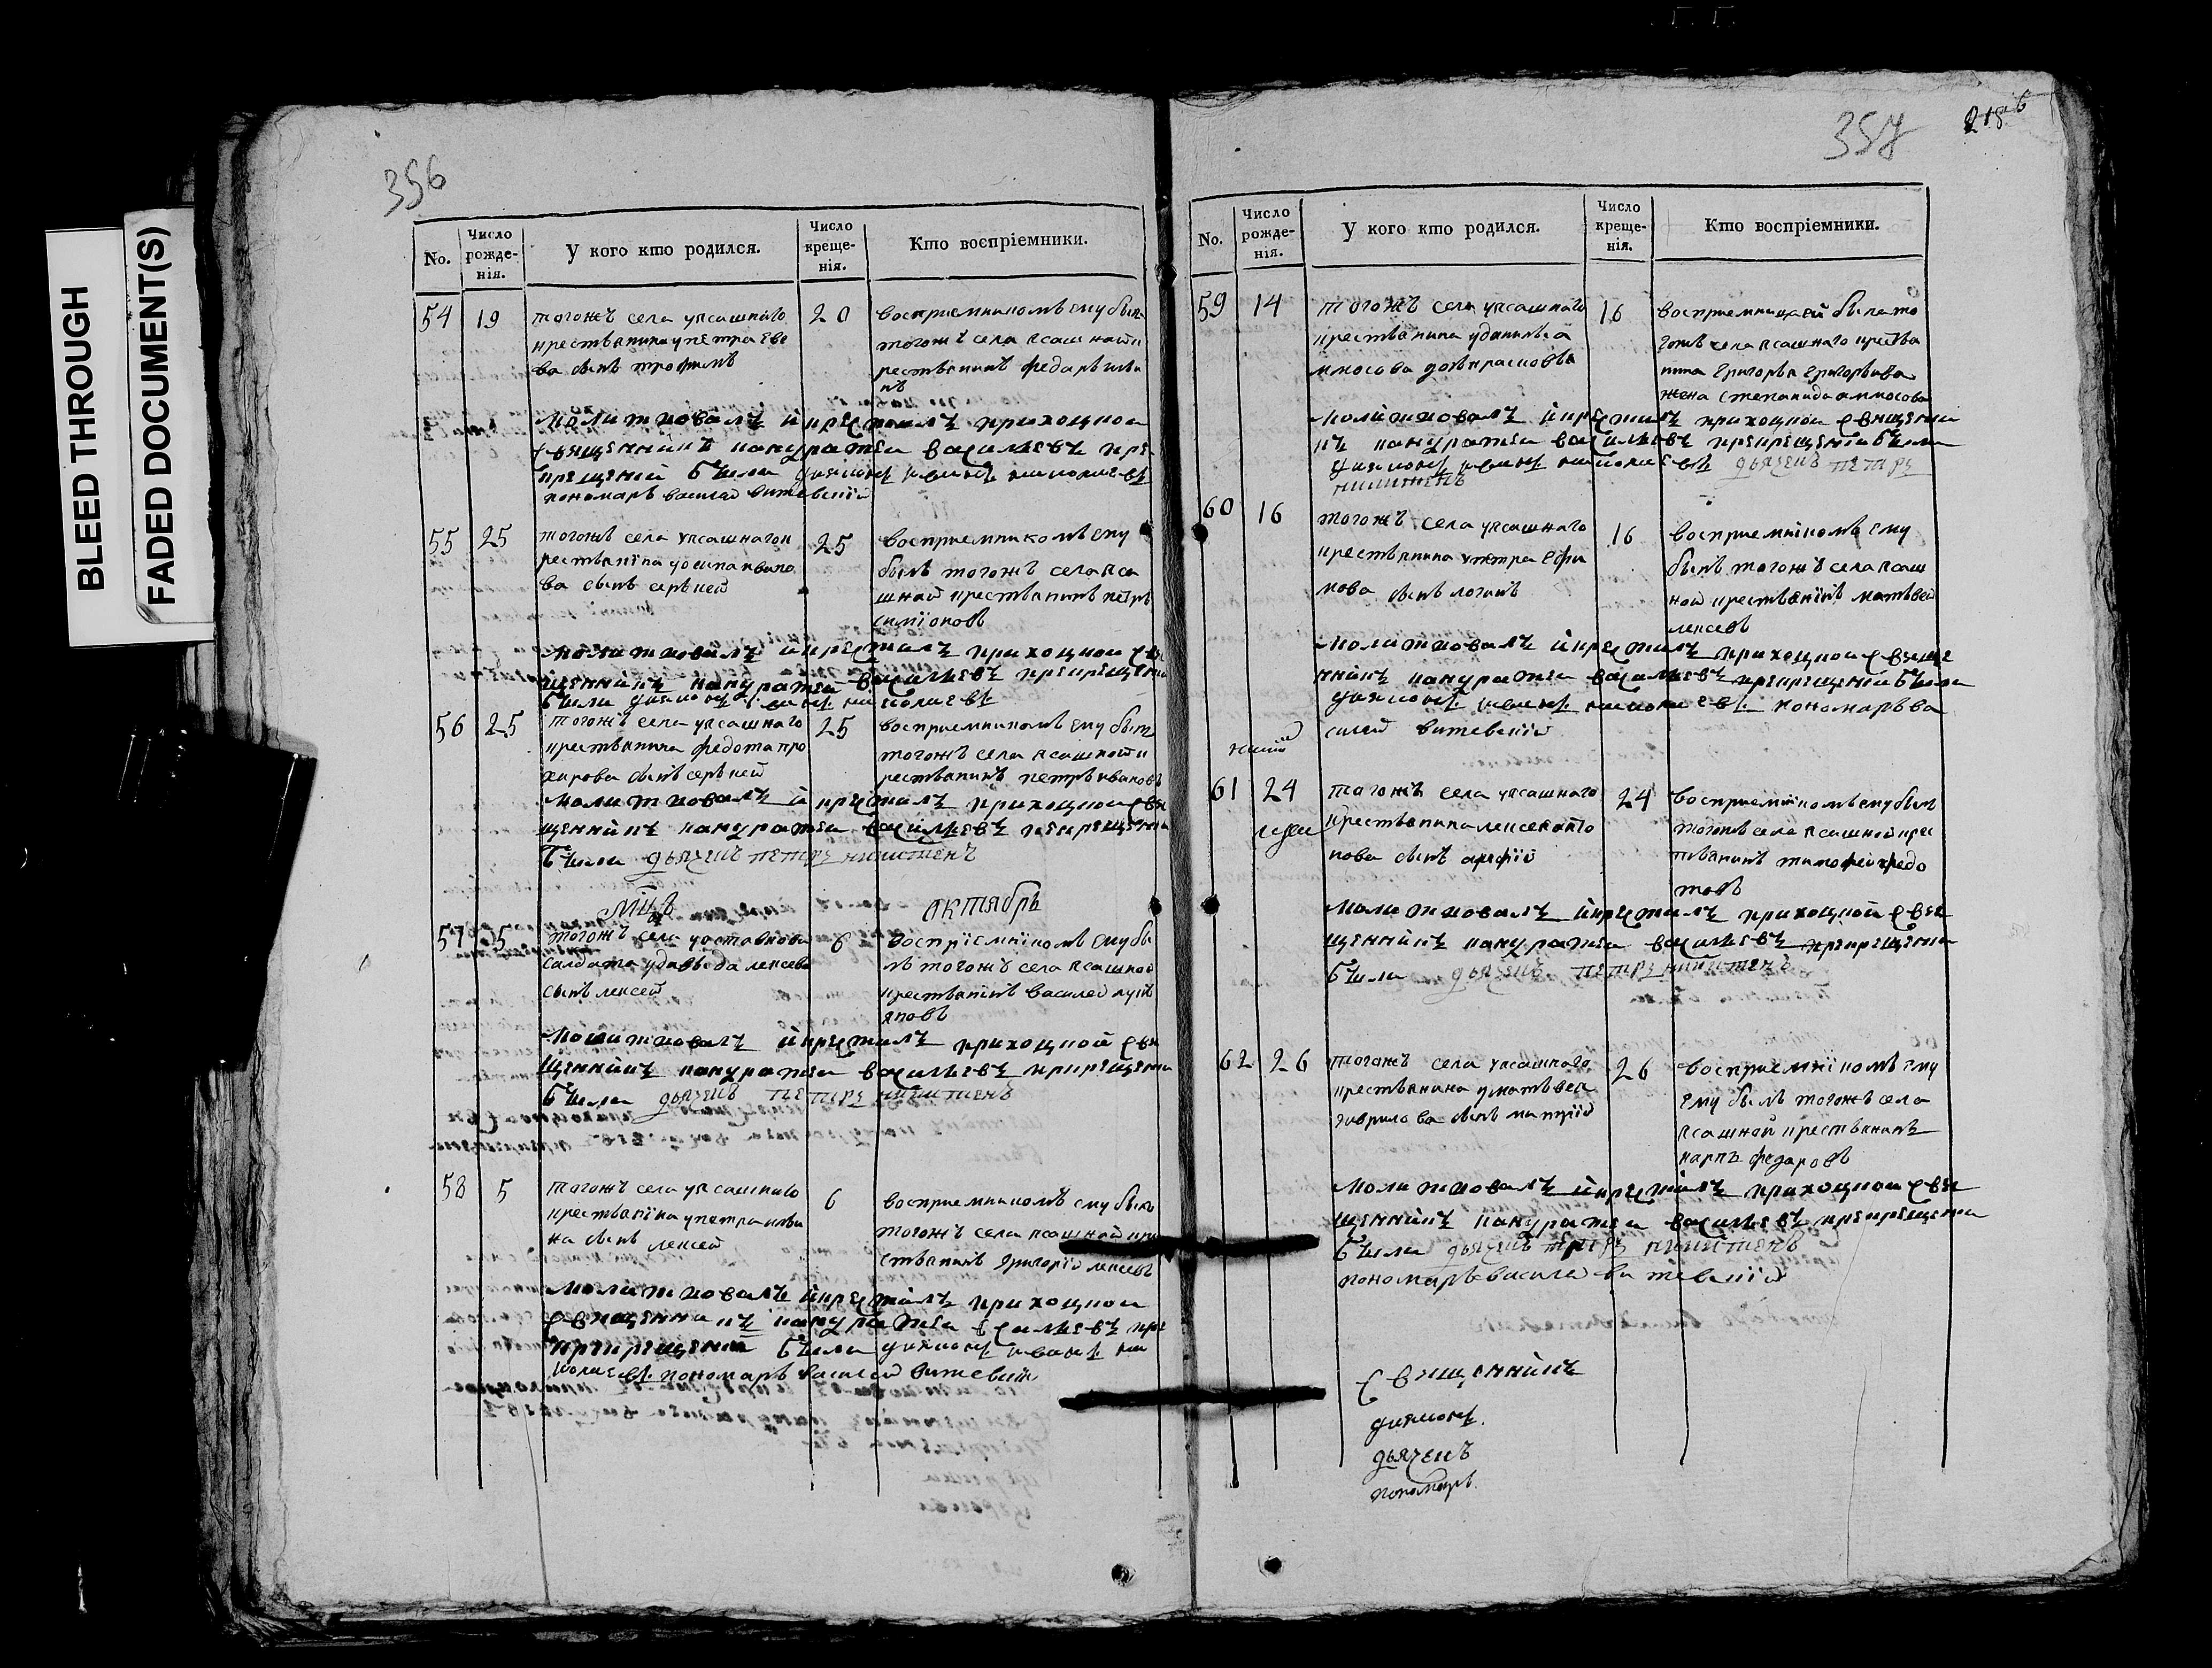 BLEED THROUGH
FADED DOCUMENT(S)
356
No.
Число рожденія.
У кого кто родился.
Число крещенія.
Кто воспріемники.
54
19
тогожъ села уясашнаго
крестьянина упетра
сынъ трофимъ
20
восприемникомъ ему былъ
тогожъ села ясашной к
рестьянинъ федаръ
молитвовалъ и крестилъ приходной
священникъ панкратей васильевъ при
крещении были диаконъ иванъ николаевъ
пономарь василей витевский
55
25
тогожъ села уясашнагок
рестьянина уосипа ивано
ва сынъ сергей
25
восприемникомъ ему
былъ тогожъ села яса
шной крестьянинъ петръ
симионовъ
молитвовалъ и крестилъ приходной свя
щенникъ панкратей васильевъ прикрещении
были диаконъ иванъ николаевъ
56
25
тогожъ села уясашнаго
крестьянина федота про
харова сынъ сергей
25
восприемникомъ ему былъ
тогожъ села ясашной к
рестьянинъ петръ ивановъ
молитвовалъ и крестилъ приходной свя
щенникъ панкратей васильевъ прикрещении
были дьячекъ петръ никитенъ
Мцъ
октябрь
57
5
тогожъ села уоставнова
салдата удавыда лексева
сынъ лексей
6
восприемникомъ ему бы
лъ тогожъ села ясашной
крестьянинъ василей лукь
яновъ
молитвовалъ и крестилъ приходной свя
щенникъ панкратей васильевъ прикрещении
были дьячекъ петръ никитенъ
58
5
тогожъ села уясашнаго
крестьянина упетра ильи
на сынъ лексей
6
восприемникомъ ему былъ
тогожъ села ясашной кре
стьянинъ григорий лексевъ
молитвовалъ и крестилъ приходной
священникъ панкратей васильевъ при
крещении были диаконъ иванъ ни
колаевъ пономарь василей витевский
357
No.
Число рожденія.
У кого кто родился.
Число крещенія.
Кто воспріемники.
59
14
тогожъ села уясашнаго
крестьянина уданилы а
мносова дочь прасковья
16
восприемницаей была то
гожъ села ясашнаго крестья
нина григорья григорьива
жена степанида аммосова
молитвовалъ и крестилъ приходной священни
къ панкратей васильевъ прикрещении были
диаконъ иванъ николаевъ дьячекъ петръ
никитенъ
60
16
тогожъ села уясашнаго
крестьянина упетра ефи
мова сынъ логинъ
16
восприемникомъ ему
былъ тогожъ села ясаш
ной крестьянинъ матьвей
лексевъ
молитвовалъ и крестилъ приходной свяще
нникъ панкратей васильевъ прикрещении были
диаконъ иванъ николаевъ пономарь ва
силей витевский
61
24
тогожъ села уясашнаго
крестьянина лексея анто
нова сынъ арефий
24
восприемникомъ ему былъ
тогожъ села ясашной крес
тьянинъ тимофей федо
товъ
молитвовалъ и крестилъ приходной свя
щенникъ панкратей васильевъ прикрещении
были дьячекъ петръ никитенъ
62
26
тогожъ села уясашнаго
крестьянина уматьвея
гаврилова сынъ
26
восприемникомъ ему
ему былъ тогожъ села
ясашной крестьянинъ
карпъ федаровъ
молитвовалъ и крестилъ приходной свя
щенникъ панкратей васильевъ прикрещении
были дьячекъ петръ никитенъ
пономарь василей витевский
священникъ
диаконъ
дьячекъ
пономарь